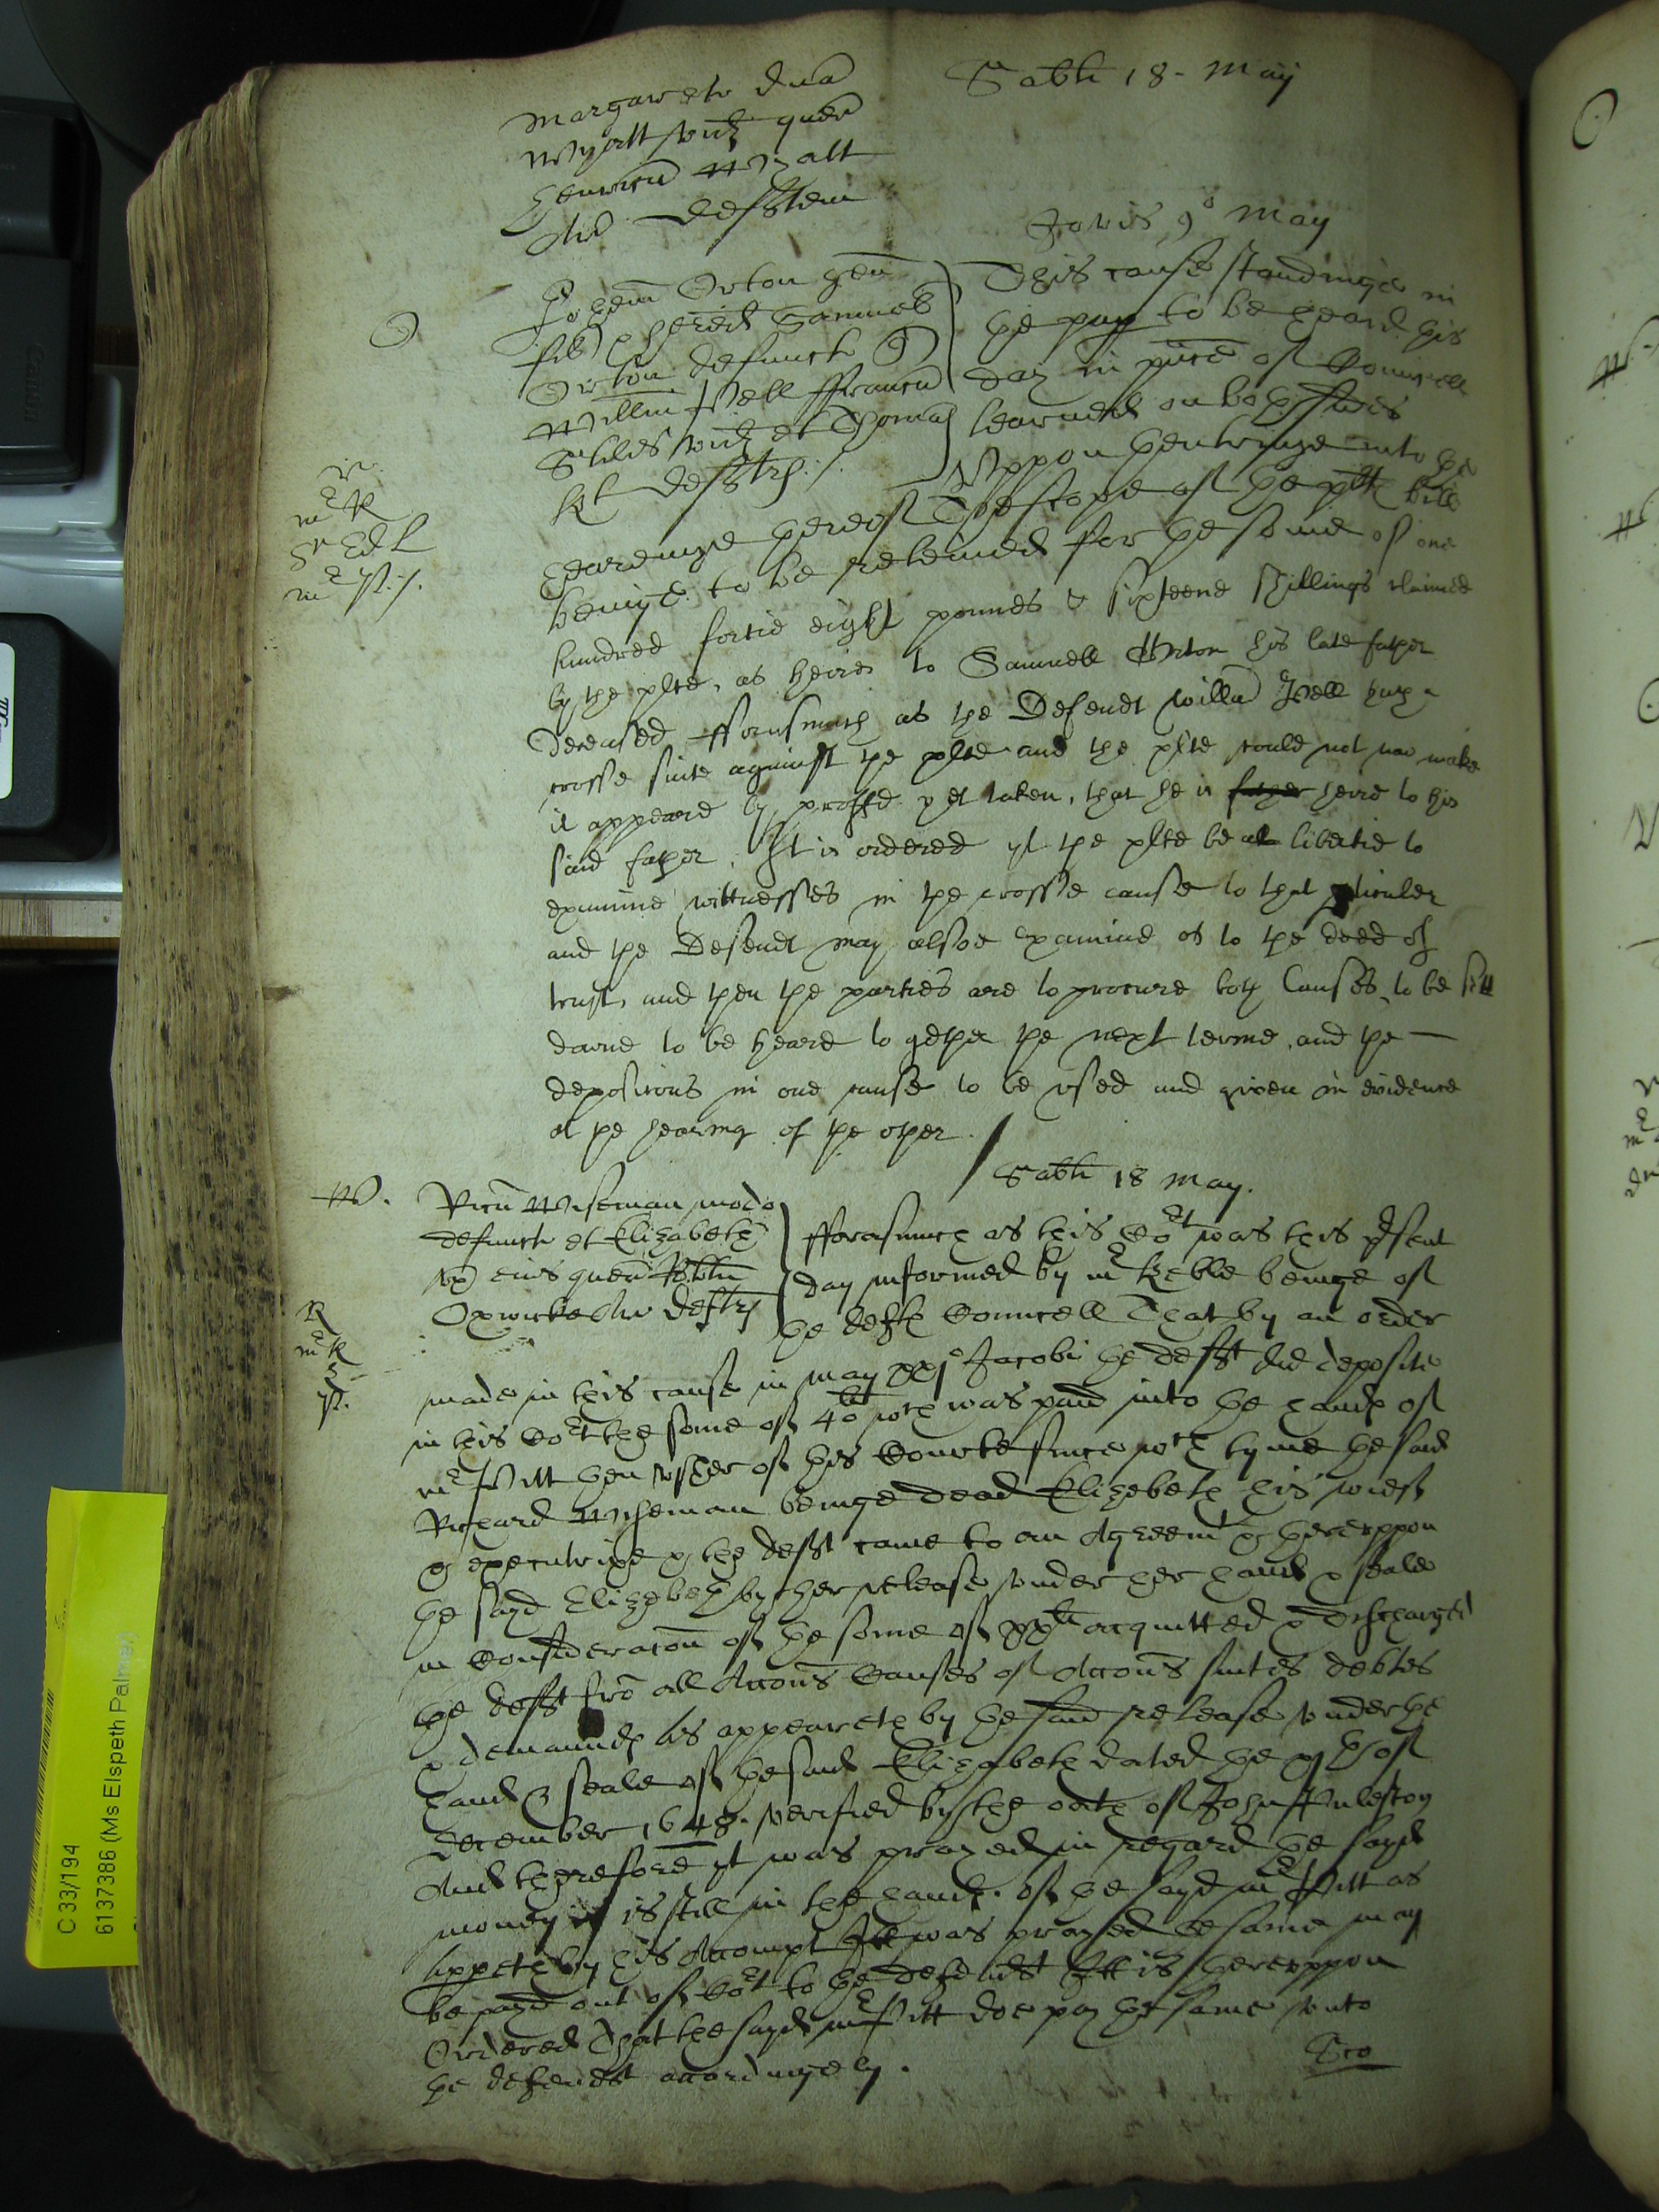 Sabti 18 May
Margareta dna
Wyatt vid quer
Henricu Wyatt
Ar deften
Jovis 9o May
O
Johem Orton gen
fil & hered Samuel
Orton defunct Q
Willm Pell Franciu
Stiles vid et Thomas
kt defts ./.
This cause standinge in
the pap to be heard this
day in prsce of Councell
learned on both sides
Uppon hentringe into the
r
mr R
Sr Ed L
mr P ./.
heareinge hereof The scope of the plts bill
beinge to be releived for the some of one
hundred fortie eight pounds & sixteene shillings claimed
by the plte, as heire to Samuell Orton his late father
deceased fforasmuch as the Defendt Willm Pell hath a
crosse suite against the plte and the plte could not now make
it appeare by proffe yet taken, that he is father heire to his
said father. It is ordered yt the plte be at libertie to
examine wittnesses in the crosse cause to that pticuler
and the Defendt may alsoe examine as to the deed of
trust, and then the parties are to procure both Causes to be sett
downe to be heard to gether the next terme, and the
depositions in one cause to be used and given in evidence
at the hearing of the other.
Sabti 18 May.
W.
Ricu Wiseman modo
defunct et Elizabeth
ux eius quer Robtu
Oxwicke Ar deft
R
mr R
P.
fforasmuch as this Cort was this psent
day informed by mr Keble beinge of
the defts Councell That by an order
made in this cause in May xxjo Jacobi the defft did deposite
in this Cort the some of 40li wch was paid into the hands of
mr Pitt then Usher of this Courte since wch tyme the said
Richard Wiseman beinge dead Elizebeth his wief
& executrixe & the defft came to an Agreemt & thereuppon
the sayd Elizebeth by her release under her hand & seale
in Consideracon of the some of xxli acquitted & discharged
the defft fro all Accons Causes of Accons suites debtes
& demaunds As appeareth by the said release under the
hand & seale of the said Elizabeth dated the of
December 1648. verified by the oath of John Puleston
And therefore yt was prayed in regard the sayd
money is still in the hands of the sayd mr Pitt as
appeth by his Accompt Itt was prayed the same may
be payd out of Cort to the defendt Itt is thereuppon
Ordered That the sayd mr Pitt doe pay the same unto
the defendt accordingely.
C 33/194
6137386 (Ms Elspeth Palmer)